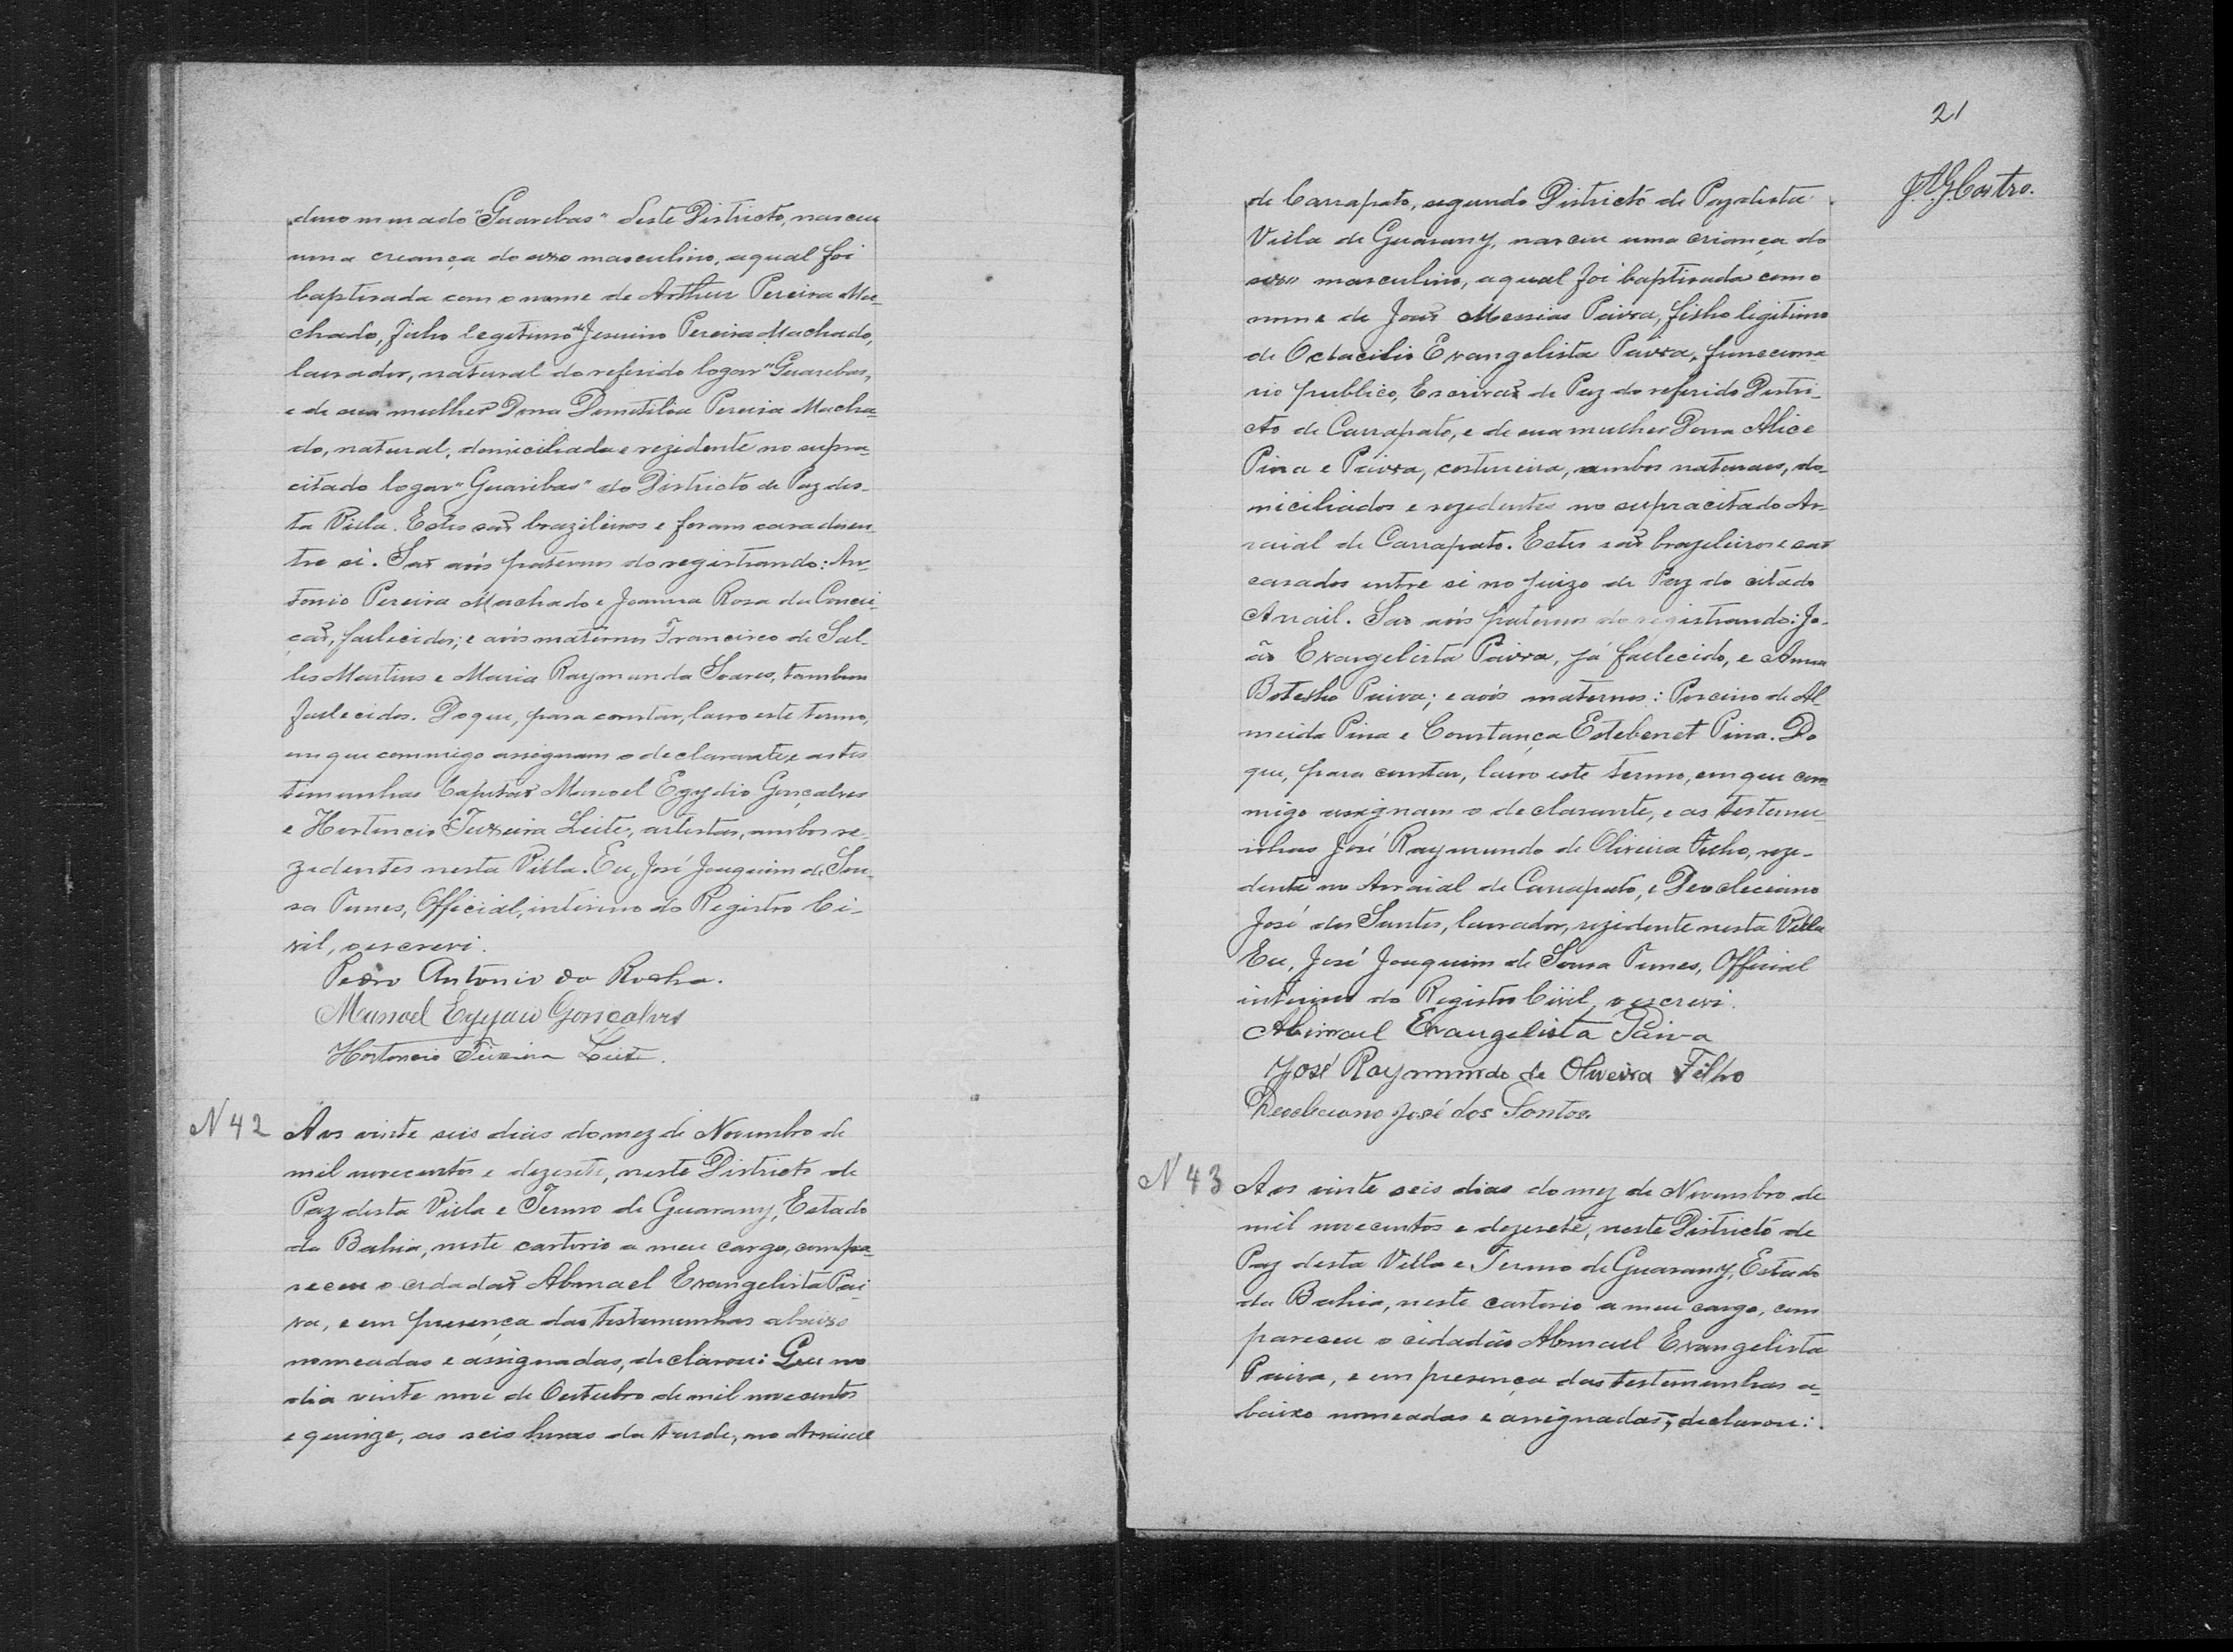 denominado "Guaribas" deste Districto, nasceu
uma creança do sexo masculino, a qual foi
baptisada com o nome de Arthur Pereira Ma-
chado, filho legitimo de Jesuino Pereira Machado,
lavrador, natural do referido logar "Guaribas",
e de sua mulher Dona Demetilia Pereira Macha-
do, natural, domiciliada e rezidente no supra-
citado logar "Guaribas" do Districto de Paz des-
ta Villa. Estes são brazileiros e foram casados en-
tre si. São avós paternos do registrando: An-
tonio Pereira Machado e Joanna Rosa da Concei-
ção, fallecidos; e avós maternos Francisco de Sal-
les Martins e Maria Raymunda Soares, tambem
fallecidos. Do que, para constar, lavro este termo,
em que commigo assignam o declarante, e as tes-
temunhas Capitão Manoel Egydio Gonçalves
e Hortencio Teixeira Leite, artistas, ambos re-
zidentes nesta Villa. Eu, José Joaquim de Sou-
sa Tunes, Official, interino do Registro Ci-
vil, o escrevi.
Pedro Antonio da Rocha.
Manoel Egydio Gonçalves
Hortencio Teixeira Leite.
N 42 Aos vinte seis dias do mez de Novembro de
mil novecentos e dezesete, neste Districto de
Paz desta Villa e Termo de Guarany, Estado
da Bahia, neste cartorio a meu cargo, compa-
receu o cidadão Abimael Evangelista Pai-
va, e em presença das testemunhas abaixo
nomeadas e assignadas, declarou: Que no
dia vinte nove de Outubro de mil novecentos
e quinze, as seis horas da tarde, no Arraial
21
de Carrapato, segundo Districto de Paz desta
J. A. G. Castro.
Villa de Guarany, nasceu uma criança do
sexo masculino, a qual foi baptisada com o
nome de João Messias Paiva, filho legitimo
de Octacilio Evangelista Paiva, funcciona
rio publico, Escrivão de Paz do referido Distri-
cto de Carrapato, e de sua mulher Dona Alice
Pina e Paiva, costureira, ambos naturaes, do-
miciliados e rezedentes no supracitado Ar-
raial de Carrapato. Estes são brazileiros e são
casados entre si no juizo de Paz do citado
Arrail. São avós paternos do registrando: Jo-
ão Evangelista Paiva, já fallecido, e Anna
Botelho Paiva; e avós maternos: Porcino de Al-
meida Pina e Constança Estebenet Pina. Do
que, para constar, lavro este termo, em que com-
migo assignam o declarante, e as testemu-
nhas José Raymundo de Oliveira Filho, reze-
dente no Arraial de Carrapato, e Deocleciano
José dos Santos, lavrador, rezidente nesta Villa
Eu, José Joaquim de Sousa Tunes, Official
interino do Registro Civil, o escrevi.
Abimael Evangelista Paiva
José Raymundo de Oliveira Filho
Deocleciano José dos Santos.
N 43 Aos vinte seis dias do mez de Novembro de
mil novecentos e dezesete, neste Districto de
Paz desta Villa e Termo de Guarany, Estado
da Bahia, neste cartorio a meu cargo, com
pareceu o cidadão Abimael Evangelista
Paiva, e em presença das testemunhas a-
baixo nomeadas e assignadas, declarou: